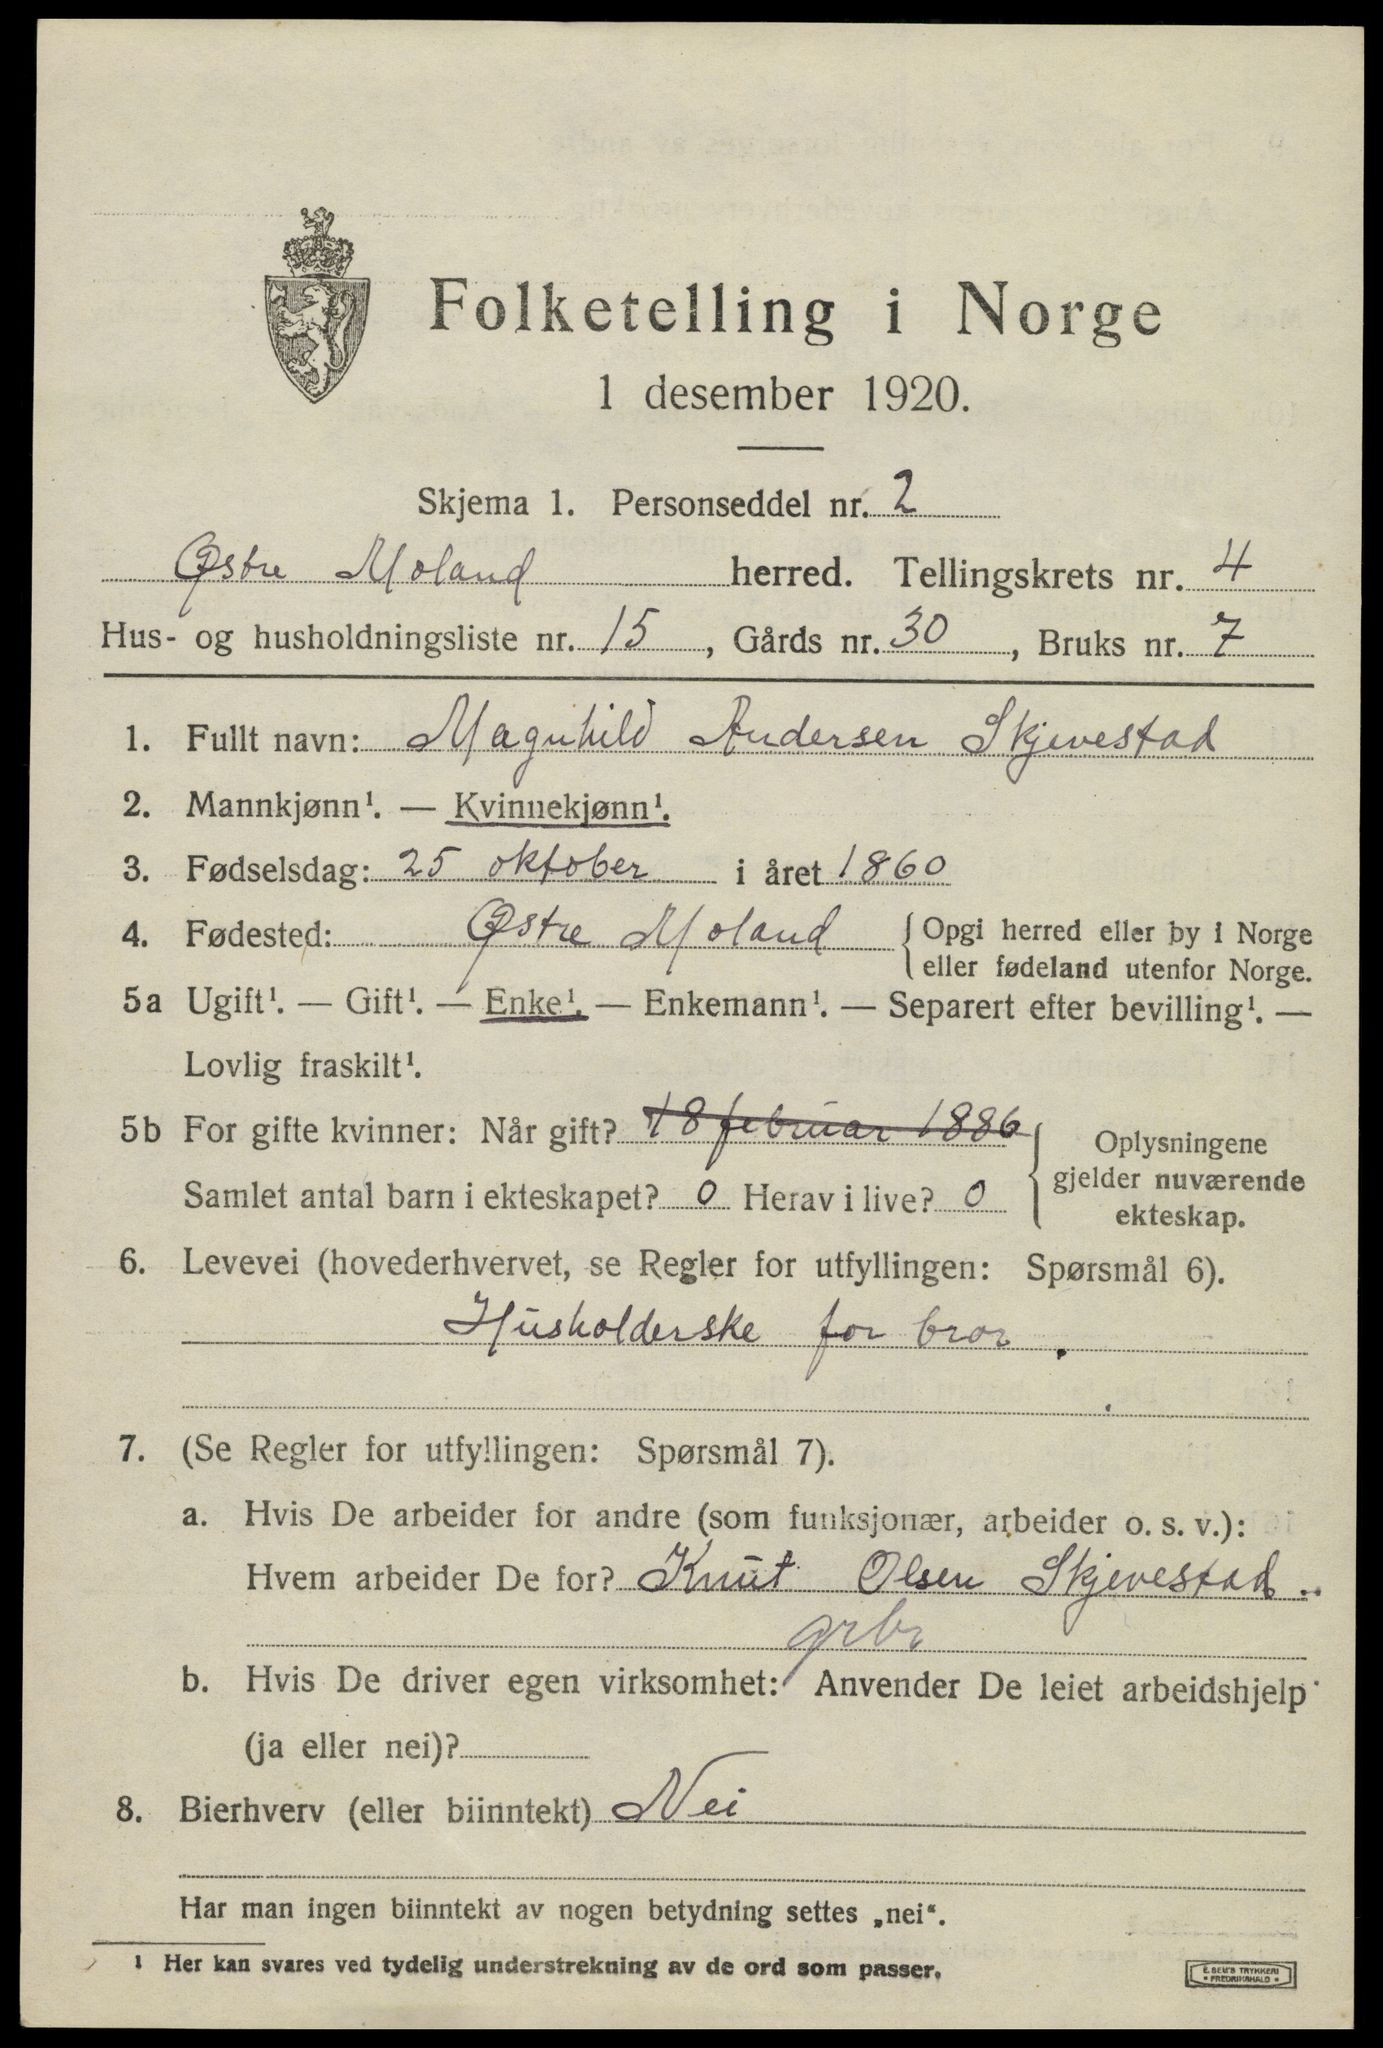 Folketelling i Norge
1 desember 1920.
Skjema 1. Personseddel nr. 2
Østre Moland herred. Tellingskrets nr. 4
Hus- og husholdningsliste nr. 15, Gårds nr. 30, Bruks nr. 7
1. Fullt navn: Magnhild Andersen Skjevestad
2. Mannkjønn¹. — Kvinnekjønn¹.
3. Fødselsdag: 25 oktober i året 1860
4. Fødested: Østre Moland { Opgi herred eller by i Norge
eller fødeland utenfor Norge.
5a Ugift¹. — Gift¹. — Enke¹. — Enkemann¹. — Separert efter bevilling¹. —
Lovlig fraskilt¹.
5b For gifte kvinner: Når gift? 18 februar 1886
Samlet antal barn i ekteskapet? 0 Herav i live? 0
{ Oplysningene
gjelder nuværende
ekteskap.
6. Levevei (hovederhvervet, se Regler for utfyllingen: Spørsmål 6).
Husholderske for bror.
7. (Se Regler for utfyllingen: Spørsmål 7).
a. Hvis De arbeider for andre (som funksjonær, arbeider o. s. v.):
Hvem arbeider De for? Knut Olsen Skjevestad
grbr
b. Hvis De driver egen virksomhet: Anvender De leiet arbeidshjelp
(ja eller nei)?
8. Bierhverv (eller biinntekt) Nei
Har man ingen biinntekt av nogen betydning settes „nei“.
1 Her kan svares ved tydelig understrekning av de ord som passer.
E. SEM'S TRYKKERI
• FREDRIKSHALD •